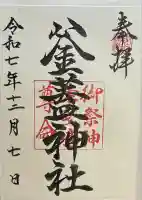 奉拝
釜蓋神社
御祭神
令和七年十二月七日